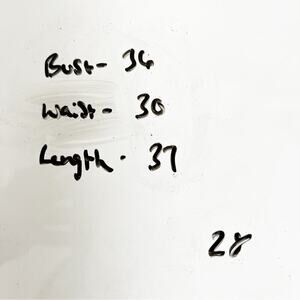 Bust - 36
Waist - 30
Length - 37
28